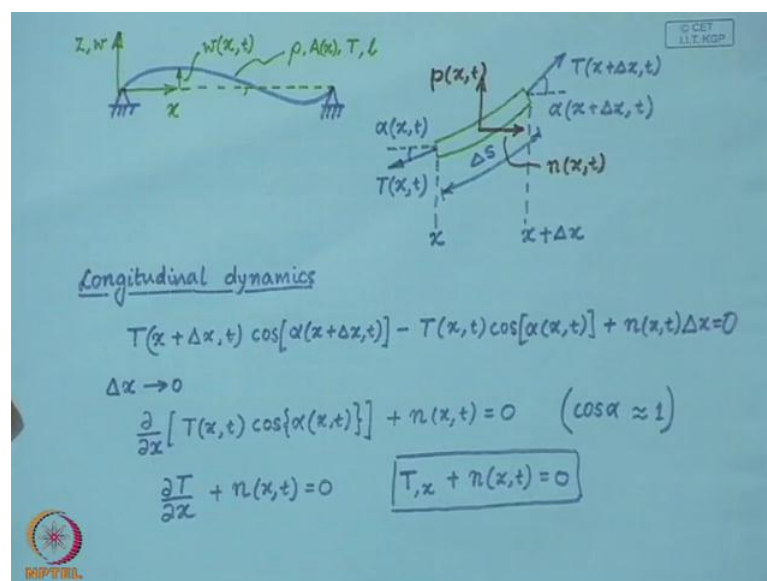 © CET
I.I.T. KGP
z,w
w(x,t)
ρ, A(x), T, l
x
p(x,t)
T(x+Δx,t)
α(x+Δx,t)
α(x,t)
T(x,t)
Δs
n(x,t)
x
x+Δx
Longitudinal dynamics
T(x+Δx,t) cos[α(x+Δx,t)] − T(x,t) cos[α(x,t)] + n(x,t)Δx=0
Δx→0
∂/∂x [T(x,t) cos{α(x,t)}] + n(x,t) = 0 (cosα ≈ 1)
∂T/∂x + n(x,t) = 0 T,x + n(x,t) = 0
NPTEL